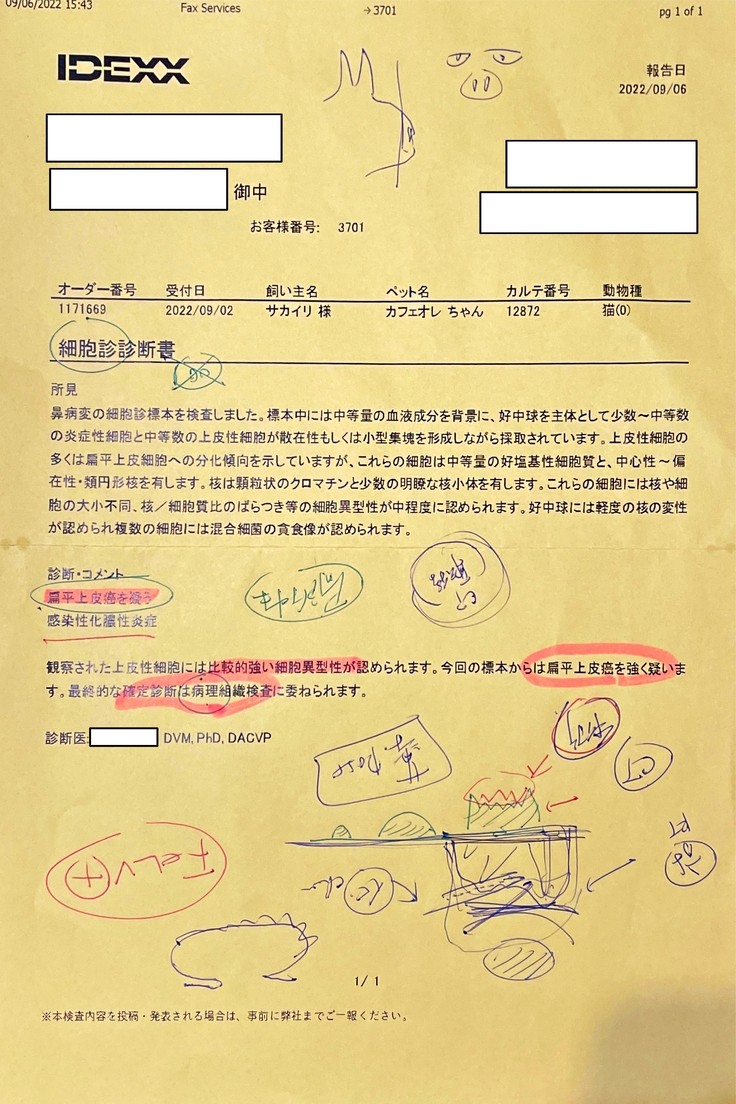 09/06/2022 15:43 Fax Services →3701 pg 1 of 1
IDEXX
報告日
2022/09/06
御中
お客様番号: 3701
オーダー番号 受付日 飼い主名 ペット名 カルテ番号 動物種
1171669 2022/09/02 サカイリ 様 カフェオレ ちゃん 12872 猫(O)
細胞診診断書
所見
鼻病変の細胞診標本を検査しました。標本中には中等量の血液成分を背景に、好中球を主体として少数～中等数
の炎症性細胞と中等数の上皮性細胞が散在性もしくは小型集塊を形成しながら採取されています。上皮性細胞の
多くは扁平上皮細胞への分化傾向を示していますが、これらの細胞は中等量の好塩基性細胞質と、中心性～偏
在性・類円形核を有します。核は顆粒状のクロマチンと少数の明瞭な核小体を有します。これらの細胞には核や細
胞の大小不同、核／細胞質比のばらつき等の細胞異型性が中程度に認められます。好中球には軽度の核の変性
が認められ複数の細胞には混合細菌の貪食像が認められます。
診断・コメント
扁平上皮癌を疑う
感染性化膿性炎症
観察された上皮性細胞には比較的強い細胞異型性が認められます。今回の標本からは扁平上皮癌を強く疑いま
す。最終的な確定診断は病理組織検査に委ねられます。
診断医: DVM, PhD, DACVP
CT
FeLV (+)
1/ 1
※本検査内容を投稿・発表される場合は、事前に弊社までご一報ください。